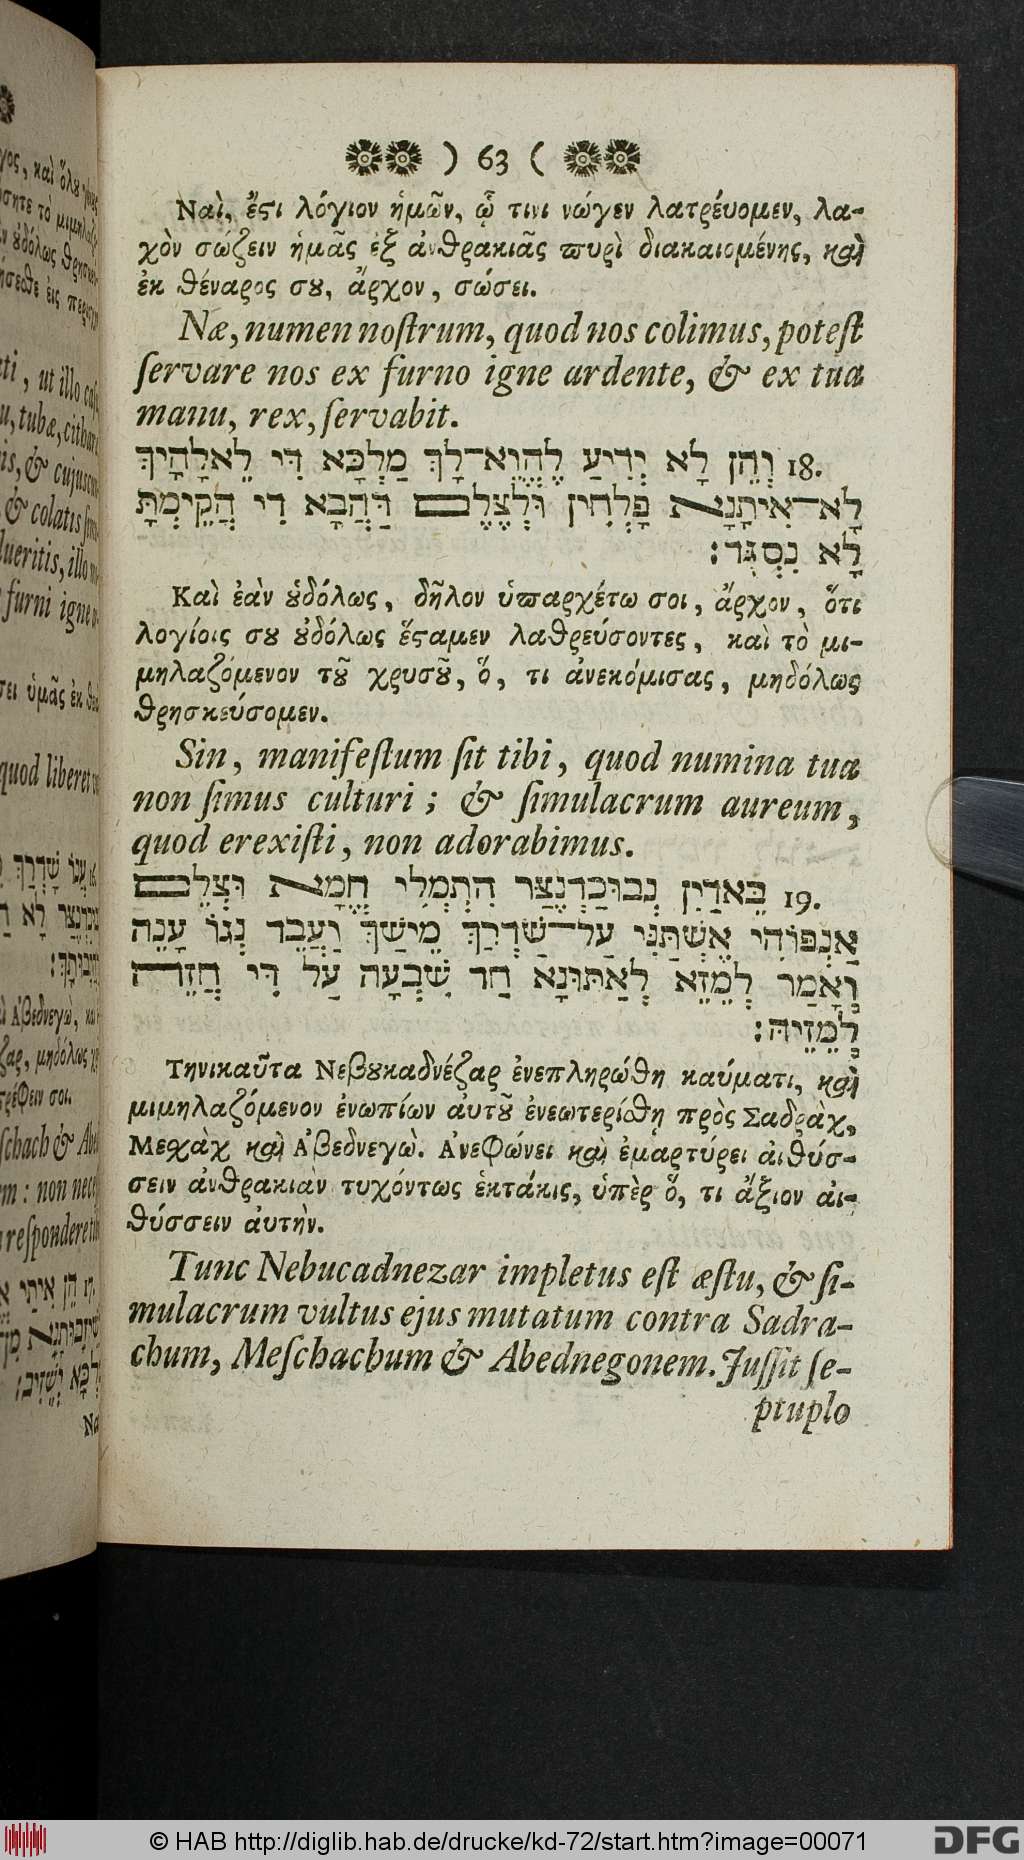 ) 63 (
Ναὶ, ἔϛι λόγιον ἡμῶν, ᾧ τινι νώγεν λατρέυομεν, λα-
χὸν σώζειν ἡμᾶς ἐξ ἀνθρακιᾶς πυρὶ διακαιομένης, καὶ
ἐκ θέναρος σȣ, ἄρχον, σώσει.
Næ, numen noſtrum, quod nos colimus, poteſt
ſervare nos ex furno igne ardente, & ex tua
manu, rex, ſervabit.
18. וְהֵן לָא יְדִיעַ לֶהֱוֵא־לָךְ מַלְכָּא דִּי לֵאלָהָיךְ
לָא־אִיתָנָא פָּלְחִין וּלְצֶלֶם דַּהֲבָא דִי הֲקֵימְתָּ
לָא נִסְגֻּד׃
Καὶ ἐὰν ȣ̓δόλως, δῆλον ὑπαρχέτω σοι, ἄρχον, ὅτι
λογίοις σȣ ȣ̓δόλως ἕϛαμεν λαθρεύσοντες, καὶ τὸ μι-
μηλαζόμενον τȣ͂ χρυσȣ͂, ὅ, τι ἀνεκόμισας, μηδόλως
θρησκεύσομεν.
Sin, manifeſtum ſit tibi, quod numina tua
non ſimus culturi; & ſimulacrum aureum,
quod erexiſti, non adorabimus.
19. בֵּאדַיִן נְבוּכַדְנֶצַּר הִתְמְלִי חֱמָא וּצְלֵם
אַנְפּוֹהִי אֶשְׁתַּנִּי עַל־שַׁדְרַךְ מֵישַׁךְ וַעֲבֵד נְגוֹ עָנֵה
וְאָמַר לְמֵזֵא לְאַתּוּנָא חַד שִׁבְעָה עַל דִּי חֲזֵה
לְמֵזְיֵהּ׃
Τηνικαῦτα Νεβȣκαδνέζαρ ἐνεπληρώθη καύματι, καὶ
μιμηλαζόμενον ἐνωπίων ἀυτȣ͂ ἐνεωτερίσθη πρὸς Σαδρὰχ,
Μεσχὰχ καὶ Ἀβεδνεγὼ. Ἀνεφώνει καὶ ἐμαρτύρει ἀιθύσ-
σειν ἀνθρακιὰν τυχόντως ἑκτάκις, ὑπὲρ ὅ, τι ἄξιον ἀι-
θύσσειν ἀυτὴν.
Tunc Nebucadnezar impletus eſt æſtu, & ſi-
mulacrum vultus ejus mutatum contra Sadra-
chum, Meſchachum & Abednegonem. Juſſit ſe-
ptuplo
© HAB http://diglib.hab.de/drucke/kd-72/start.htm?image=00071
DFG